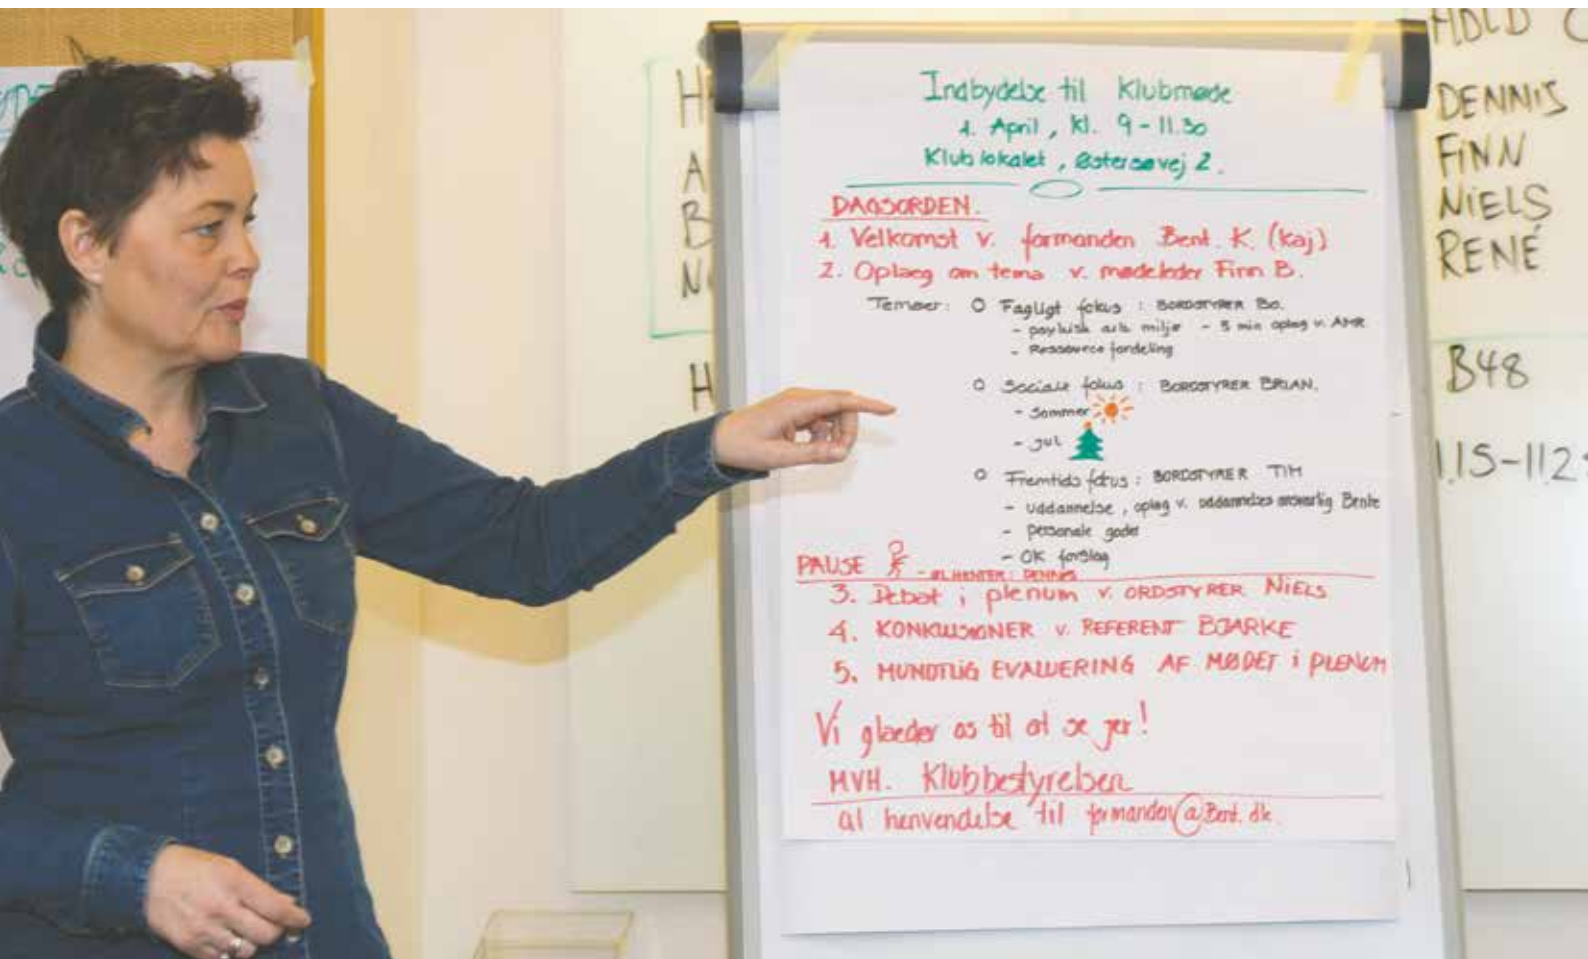 Indbydelse til Klubmøde
1. April, kl. 9-11.30
Klublokalet, Østersøvej 2.
DAGSORDEN.
1. Velkomst v. formanden Bent. K. (Kaj)
2. Oplæg om tema v. mødeleder Finn B.
Temaer: O Fagligt fokus : BORDSTYRER BO.
- psykisk arb. miljø - 5 min oplæg v. AMR
- Ressource fordeling
O Sociale fokus : BORDSTYRER BRIAN.
- Sommer
- jul
O Fremtids fokus : BORDSTYRER TIM
- uddannelse, oplæg v. uddannelses ansvarlig Bente
- personale goder
- OK forslag
PAUSE - ØL HENTER : DENNIS
3. Debat i plenum v. ORDSTYRER NIELS
4. KONKLUSIONER v. REFERENT BJARKE
5. MUNDTLIG EVALUERING AF MØDET i PLENUM
Vi glæder os til at se jer!
MVH. Klubbestyrelsen
al henvendelse til formanden@Bent.dk
HOLD
DENNIS
FINN
NIELS
RENÉ
B48